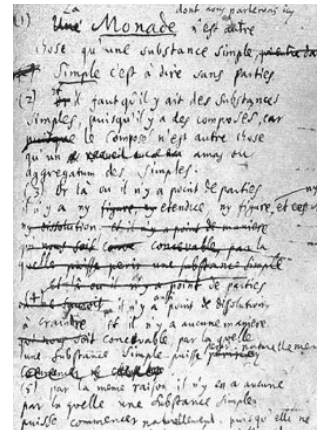 La dont nous parlerons icy
(1) Une Monade n'est autre
chose qu'une substance simple,
Simple c'est à dire sans parties
(2) il faut qu'il y ait des substances
simples, puisqu'il y a des composés, car
puisque le composé n'est autre chose
qu'un amas ou
aggregatum des simples.
(3) Or là où il n'y a point de parties
il n'y a ny figure, ny etendue ny figure, et
ny dissolution. et il n'y a point de maniere
qui nous soit conceuable, par la
quelle puisse perir une substance simple
là où il n'y a point de parties
(4) il n'y a point de dissolution
à craindre et il n'y a aucune maniere
soit concevable par la quelle
une substance simple puisse perir naturellement
(5) par la meme raison il n'y en a aucune
par la quelle une substance simple
puisse commencer naturellement, puisqu'elle ne